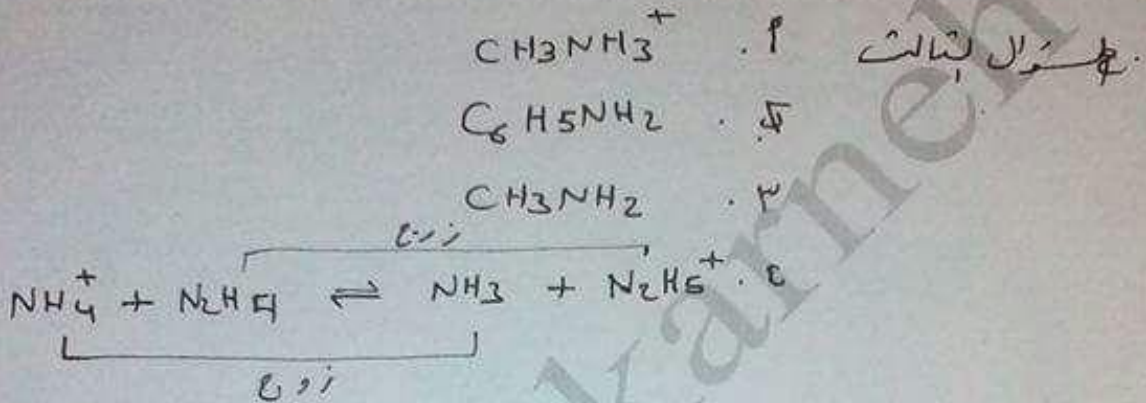 السؤال الثالث . ١ . CH3NH3+
٢ . C6H5NH2
٣ . CH3NH2
زوج
٤ . NH4+ + N2H4 ⇌ NH3 + N2H5+
زوج
karneh